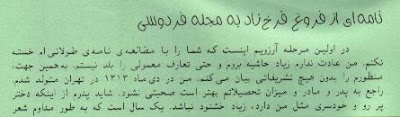 نامه‌ای از فروغ فرخ‌زاد به مجله فردوسی
در اولین مرحله آرزویم اینست که شما را با مطالعه‌ی نامه‌ی طولانی‌ام خسته
نکنم. من عادت ندارم زیاد حاشیه بروم و حتی تعارف معمولی را بلد نیستم. به‌همین جهت،
منظورم را بدون هیچ تشریفاتی بیان می‌کنم. من در دی‌ماه ۱۳۱۳ در تهران متولد شدم.
راجع به پدر و مادر و میزان تحصیلاتم بهتر است صحبتی نشود. شاید پدرم از اینکه دختر
پر رو و خودسری مثل من دارد، زیاد خشنود نباشد. یک سال است که به طور مداوم شعر